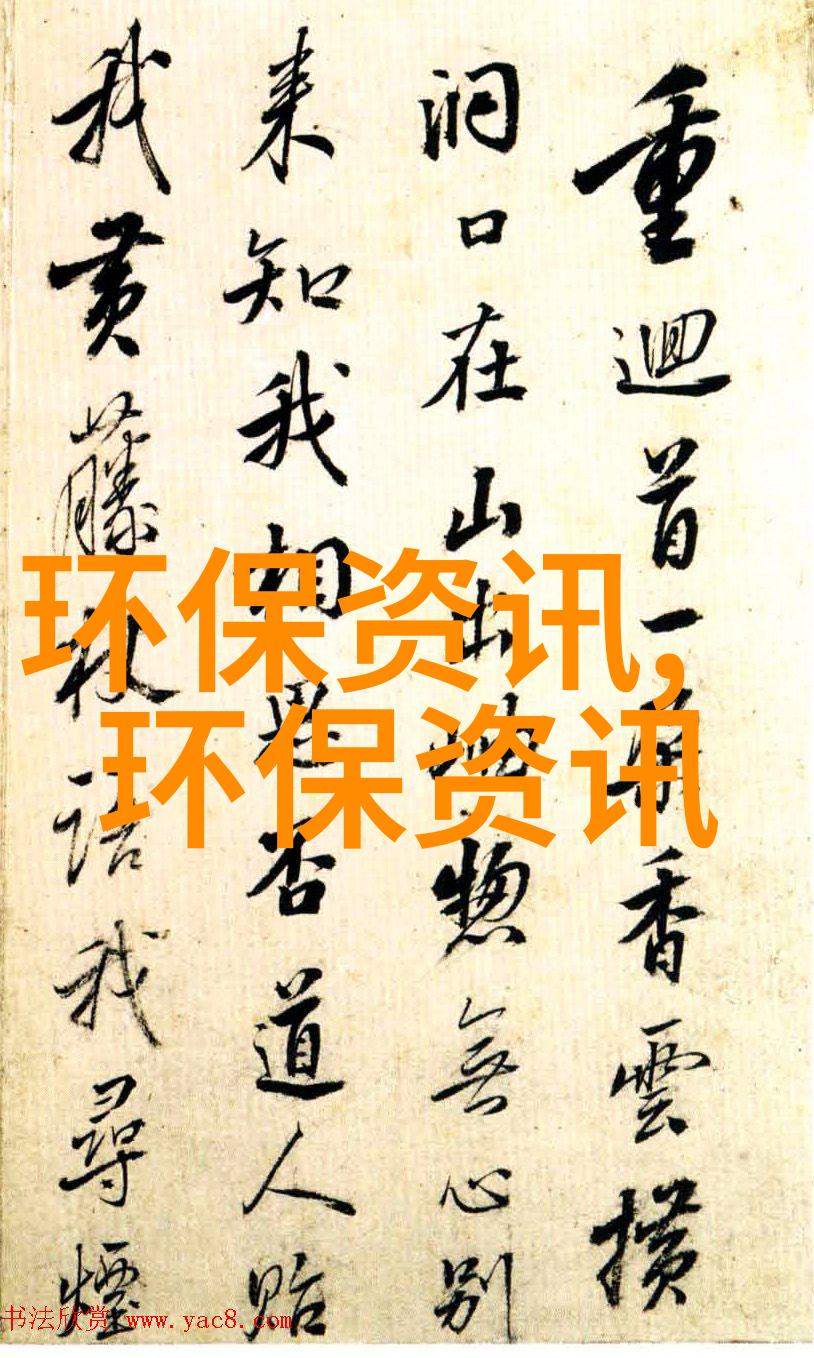 重迴首一香雲横
洞口在山出岫惣無心别
来知我相思否道人貽
我黄藤杖語我尋煙
环保资讯,
环保资讯
书法欣赏 www.yac8.com